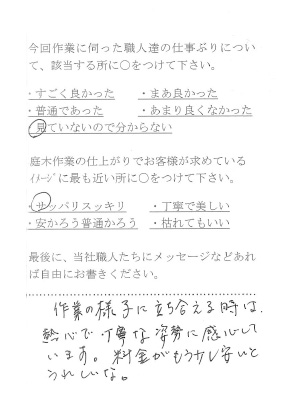 今回作業に伺った職人達の仕事ぶりについ
て、該当する所に○をつけて下さい。
・すごく良かった ・まあ良かった
・普通であった ・あまり良くなかった
・見ていないので分からない
庭木作業の仕上がりでお客様が求めている
ｲﾒｰｼﾞに最も近い所に○をつけて下さい。
・サッパリスッキリ ・丁寧で美しい
・安かろう普通かろう ・枯れてもいい
最後に、当社職人たちにメッセージなどあれ
ば自由にお書きください。
作業の様子に立ち合える時は、
熱心で丁寧な姿勢に感心して
います。料金がもう少し安いと
うれしいな。